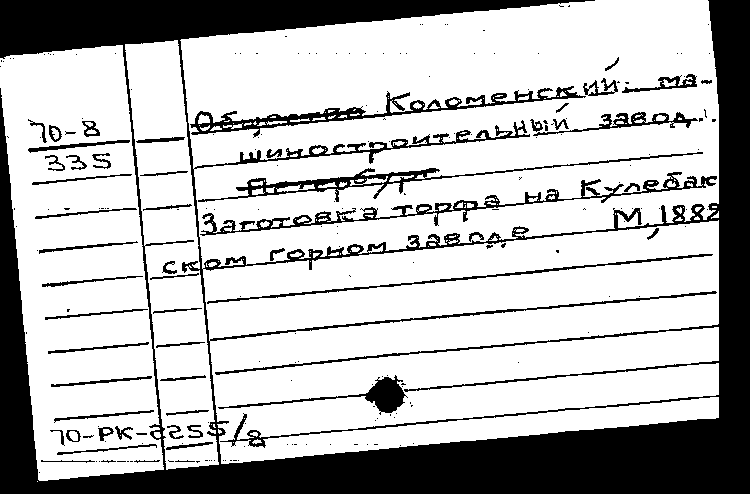 70-8
335
Общество Коломенский ма-
шиностроительный завод.
Петербург
Заготовка торфа на Кулебак
ском горном заводе М, 1882
70-РК-2255/8